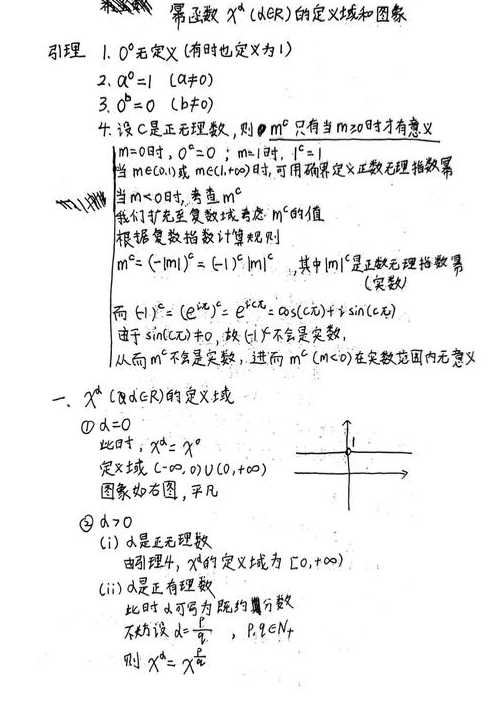 幂函数 x^α (α∈R)的定义域和图象
引理 1. 0⁰无定义(有时也定义为1)
2. a⁰=1 (a≠0)
3. 0^b=0 (b≠0)
4. 设C是正无理数,则 m^c 只有当m≥0时才有意义
m=0时, 0^c=0 ; m=1时, 1^c=1
当m∈(0,1)或m∈(1,+∞)时,可用确界定义正数无理指数幂
当m<0时,考查m^c
我们扩充至复数域考虑m^c的值
根据复数指数计算规则
m^c=(-|m|)^c=(-1)^c|m|^c ,其中|m|^c是正数无理指数幂
(实数)
而(-1)^c=(e^{iπ})^c=e^{icπ}=cos(cπ)+i sin(cπ)
由于sin(cπ)≠0,故(-1)^c不会是实数,
从而m^c不会是实数,进而m^c(m<0)在实数范围内无意义
一、x^α (α∈R)的定义域
① α=0
此时, x^α=x⁰
定义域(-∞,0)∪(0,+∞)
图象如右图,平凡
1
② α>0
(i) α是正无理数
由引理4, x^α的定义域为[0,+∞)
(ii) α是正有理数
此时α可写为既约分数
不妨设α=p/q , p,q∈N₊
则 x^α=x^{p/q}